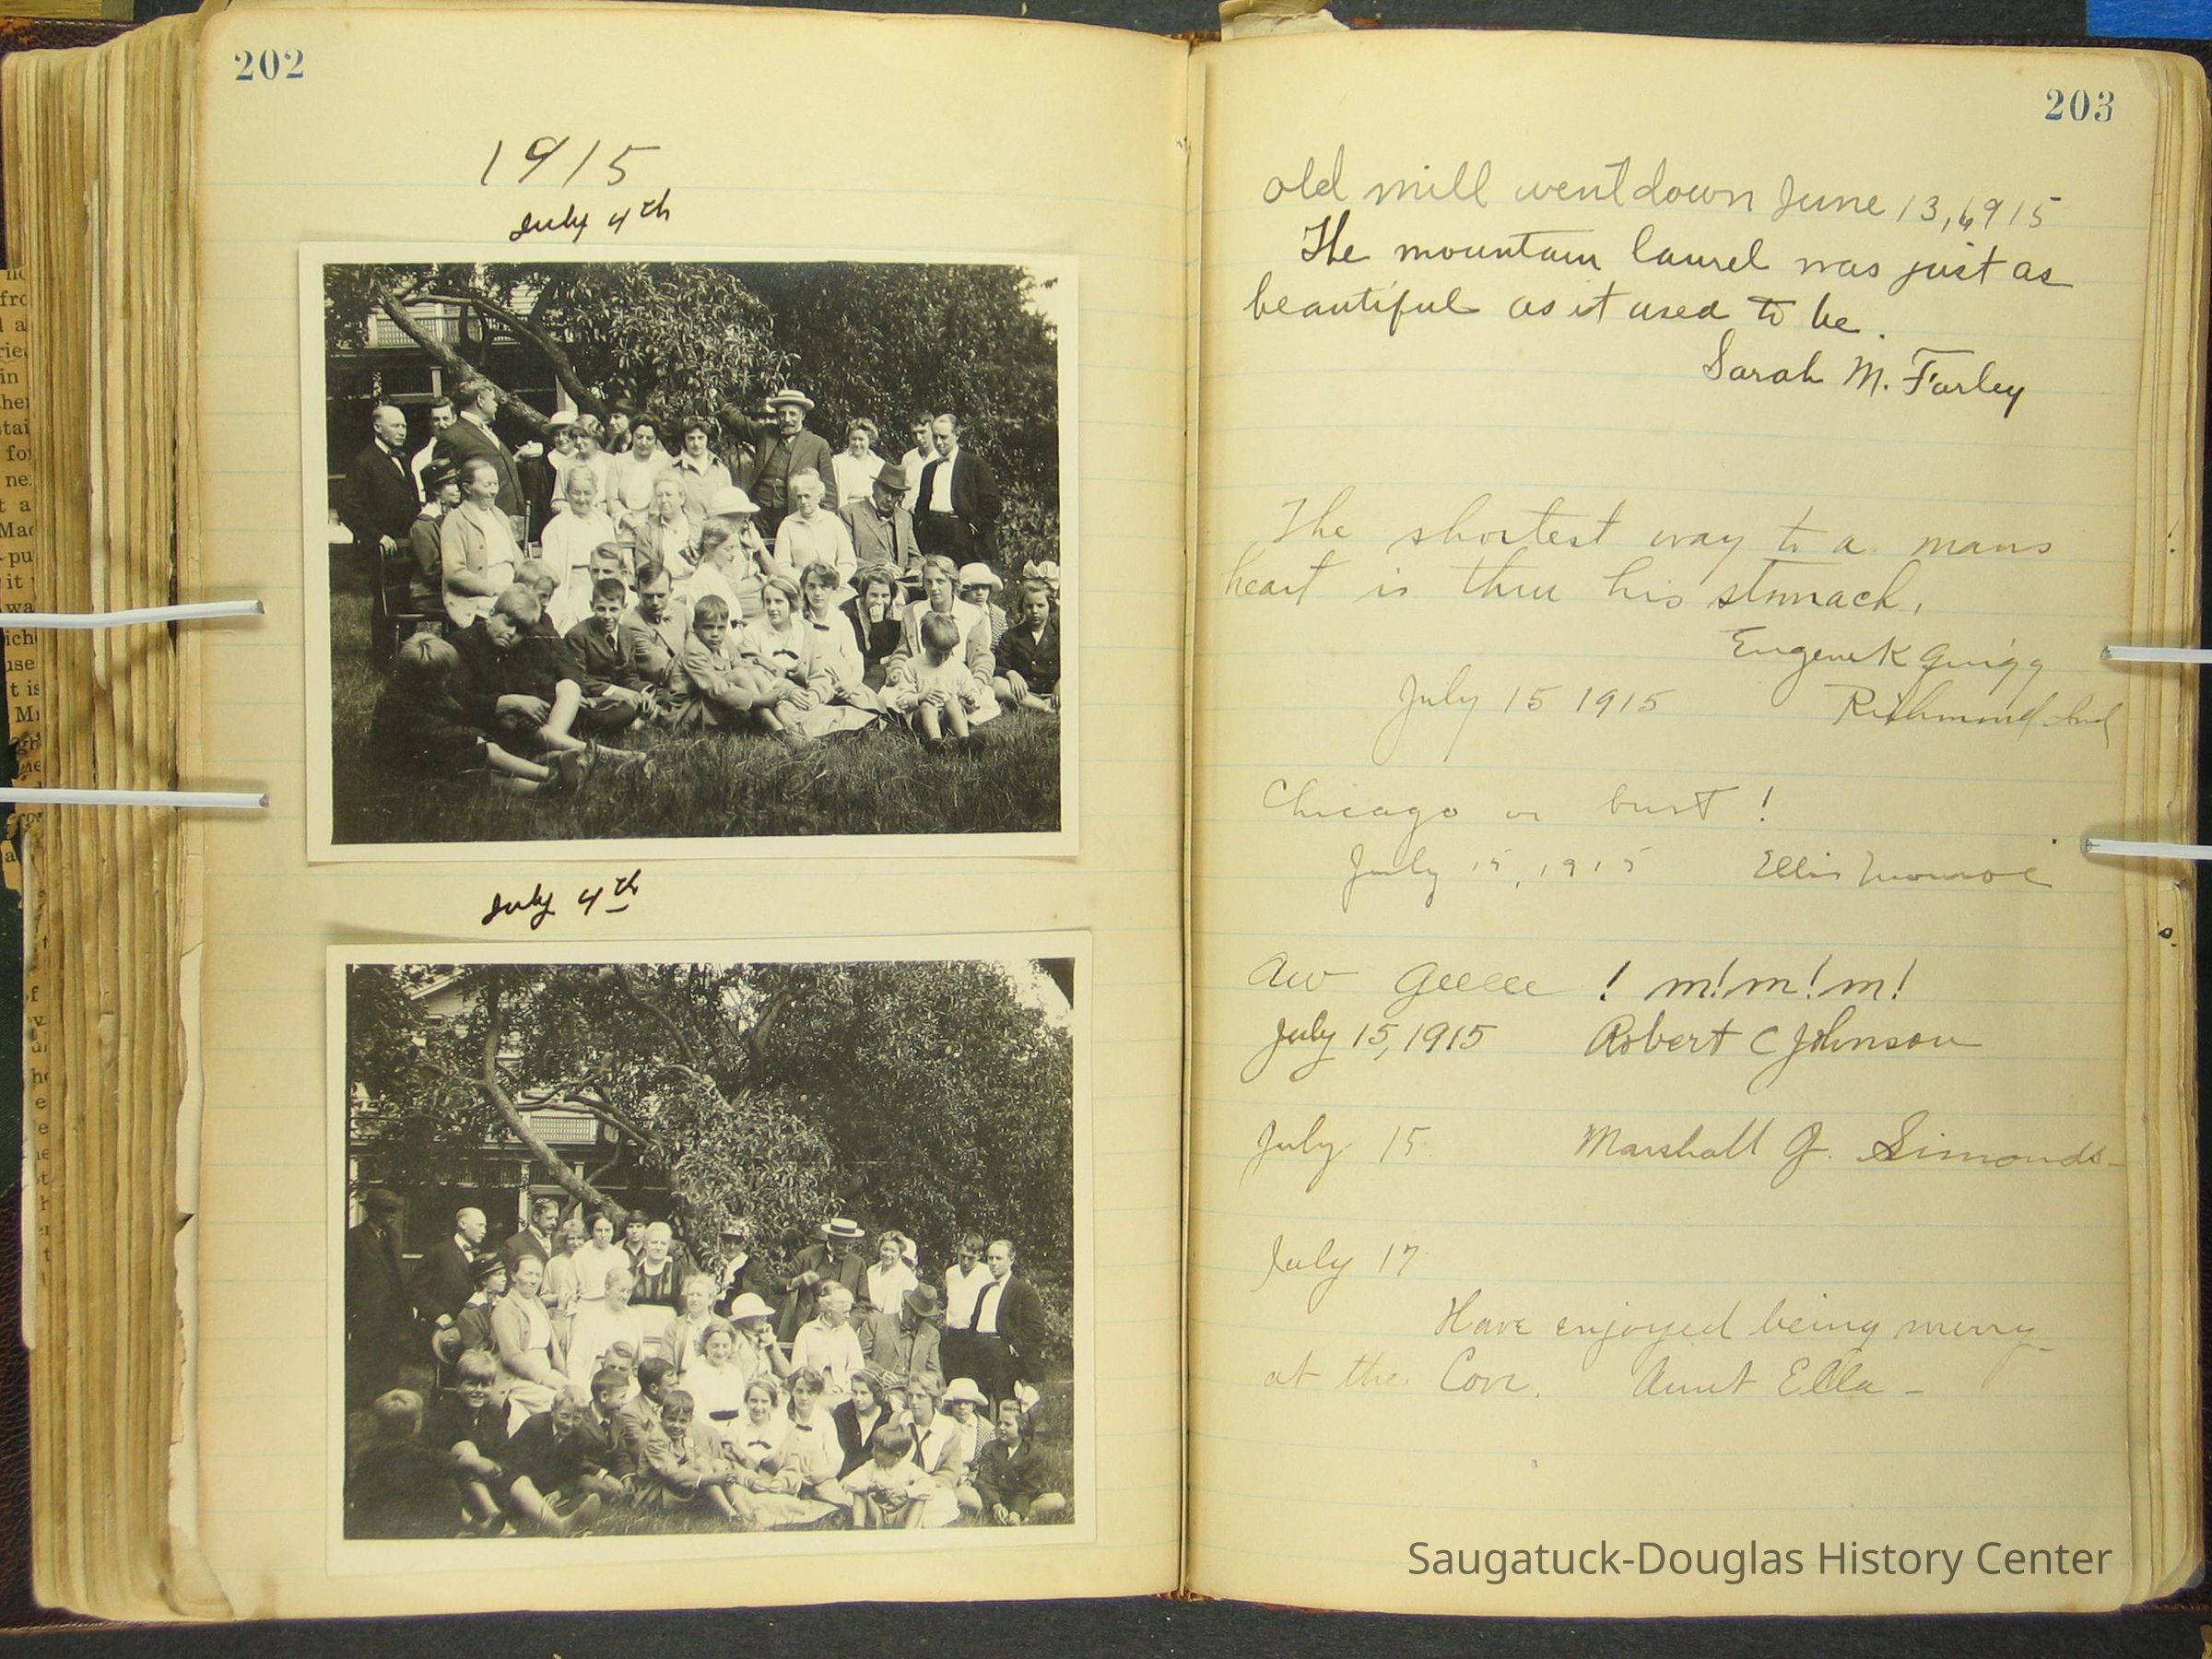 202
1915
July 4th
July 4th
203
old mill went down June 13, 1915
The mountain laurel was just as
beautiful as it used to be.
Sarah M. Farley
The shortest way to a mans
heart is thru his stomach.
Eugene K Quigg
July 15 1915 Richmond Ind
Chicago or bust!
July 15, 1915 Ellis
Aw Geeeee ! m!m!m!
July 15, 1915 Robert C Johnson
July 15 Marshall G. Simonds
July 17
Have enjoyed being merry
at the Cove. Aunt Ella -
Saugatuck-Douglas History Center